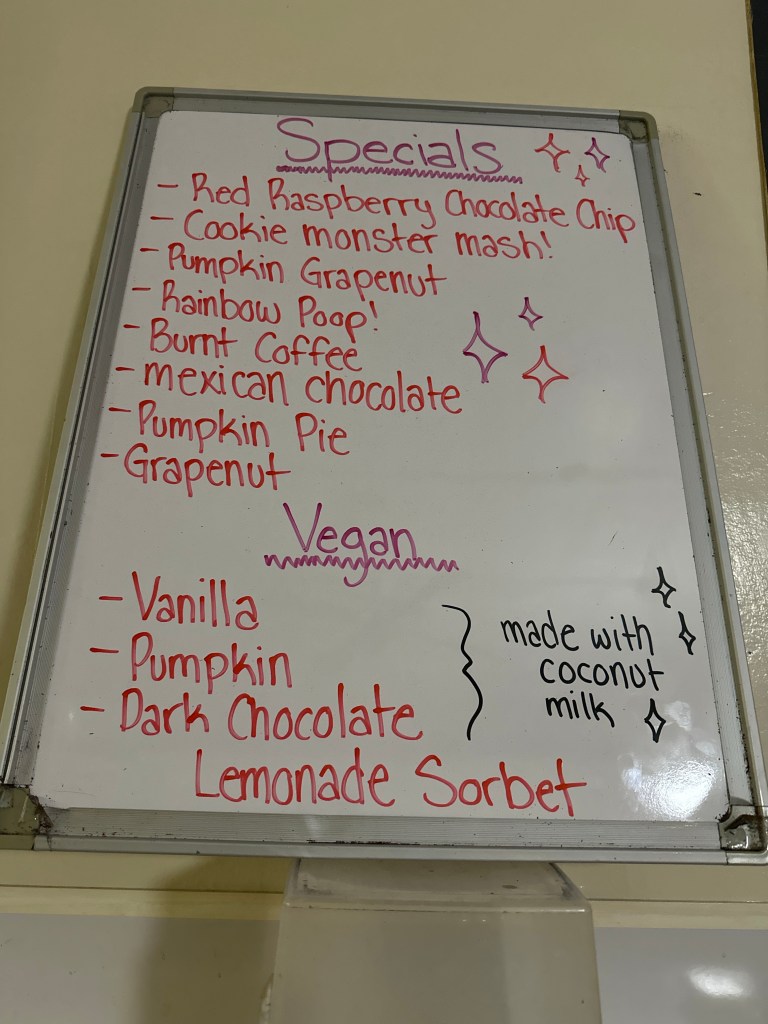 Specials
- Red Raspberry Chocolate Chip
- Cookie monster mash!
- Pumpkin Grapenut
- Rainbow Poop!
- Burnt Coffee
- mexican chocolate
- Pumpkin Pie
- Grapenut
Vegan
- Vanilla
- Pumpkin
- Dark Chocolate
made with
coconut
milk
Lemonade Sorbet